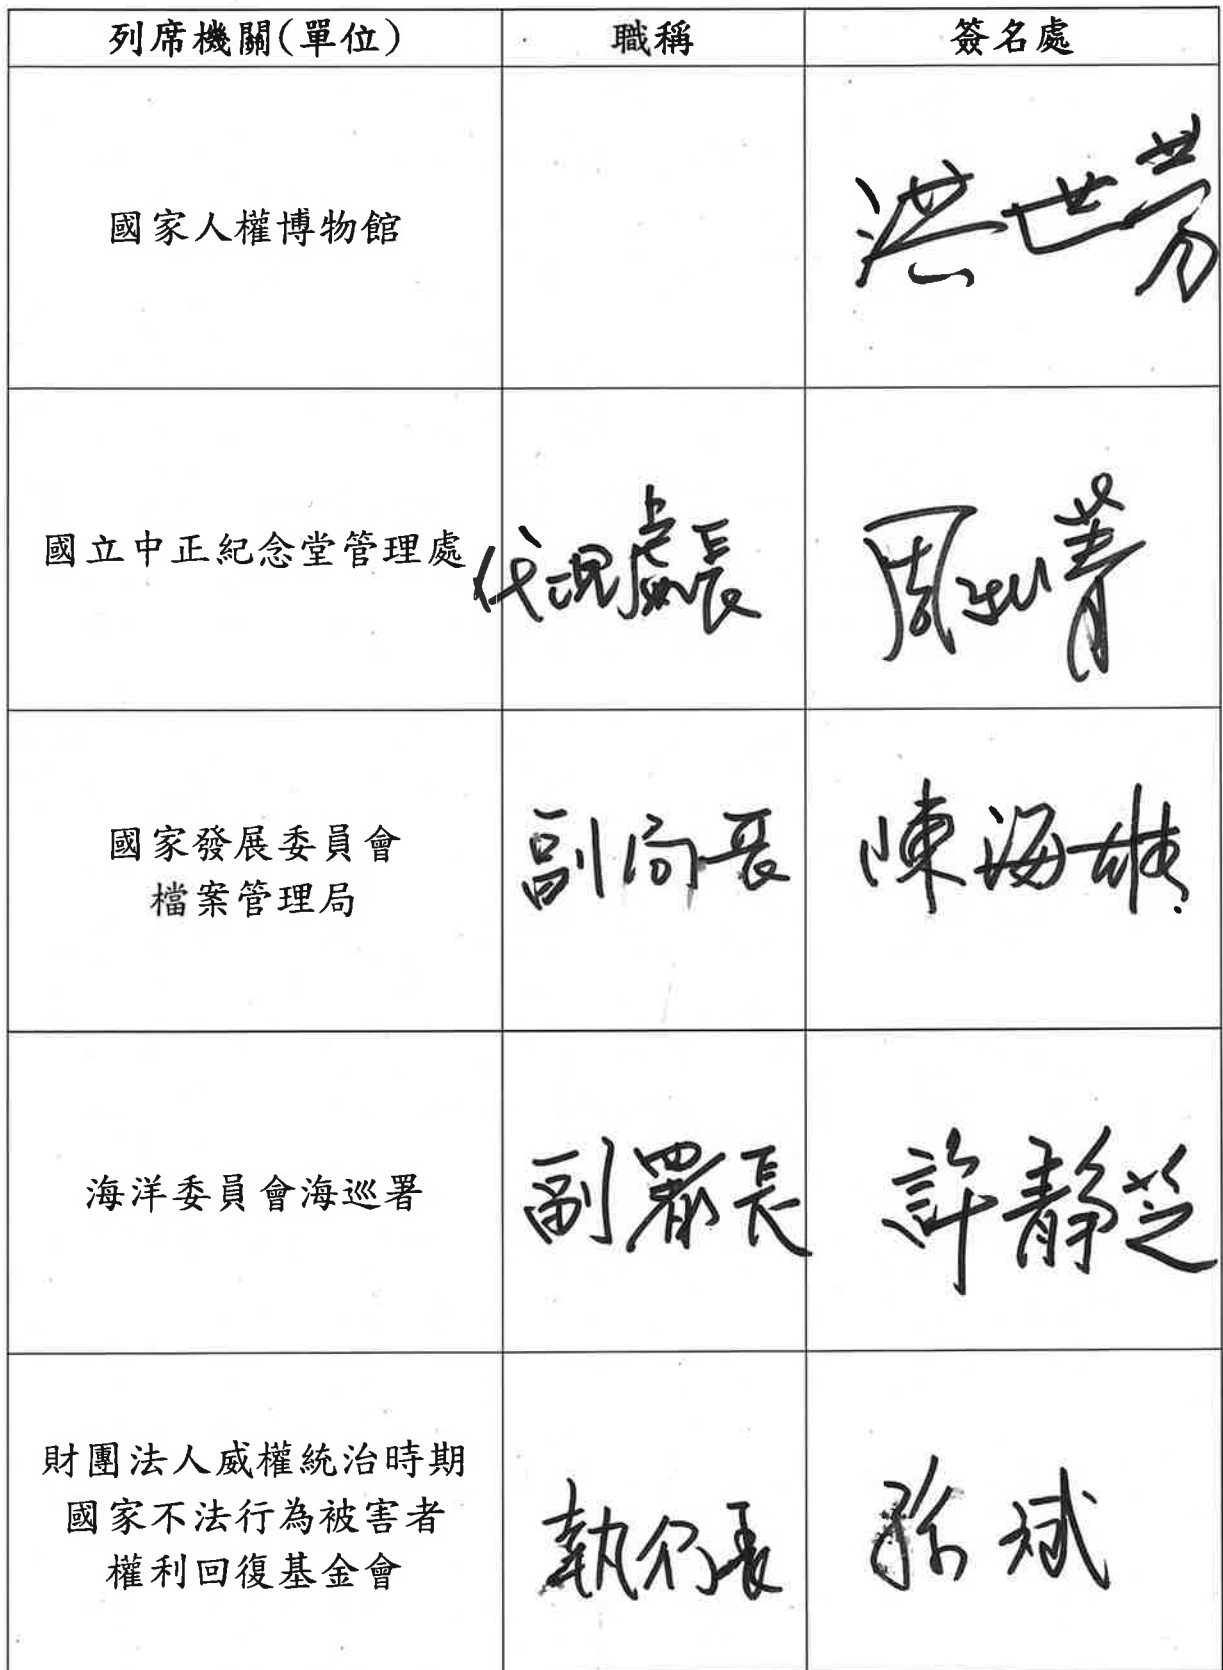 列席機關(單位) 職稱 簽名處
國家人權博物館 洪世芳
國立中正紀念堂管理處 代理處長 周
國家發展委員會
檔案管理局
副局長 陳海雄
海洋委員會海巡署 副署長 許靜芝
財團法人威權統治時期
國家不法行為被害者
權利回復基金會
執行長 孫斌